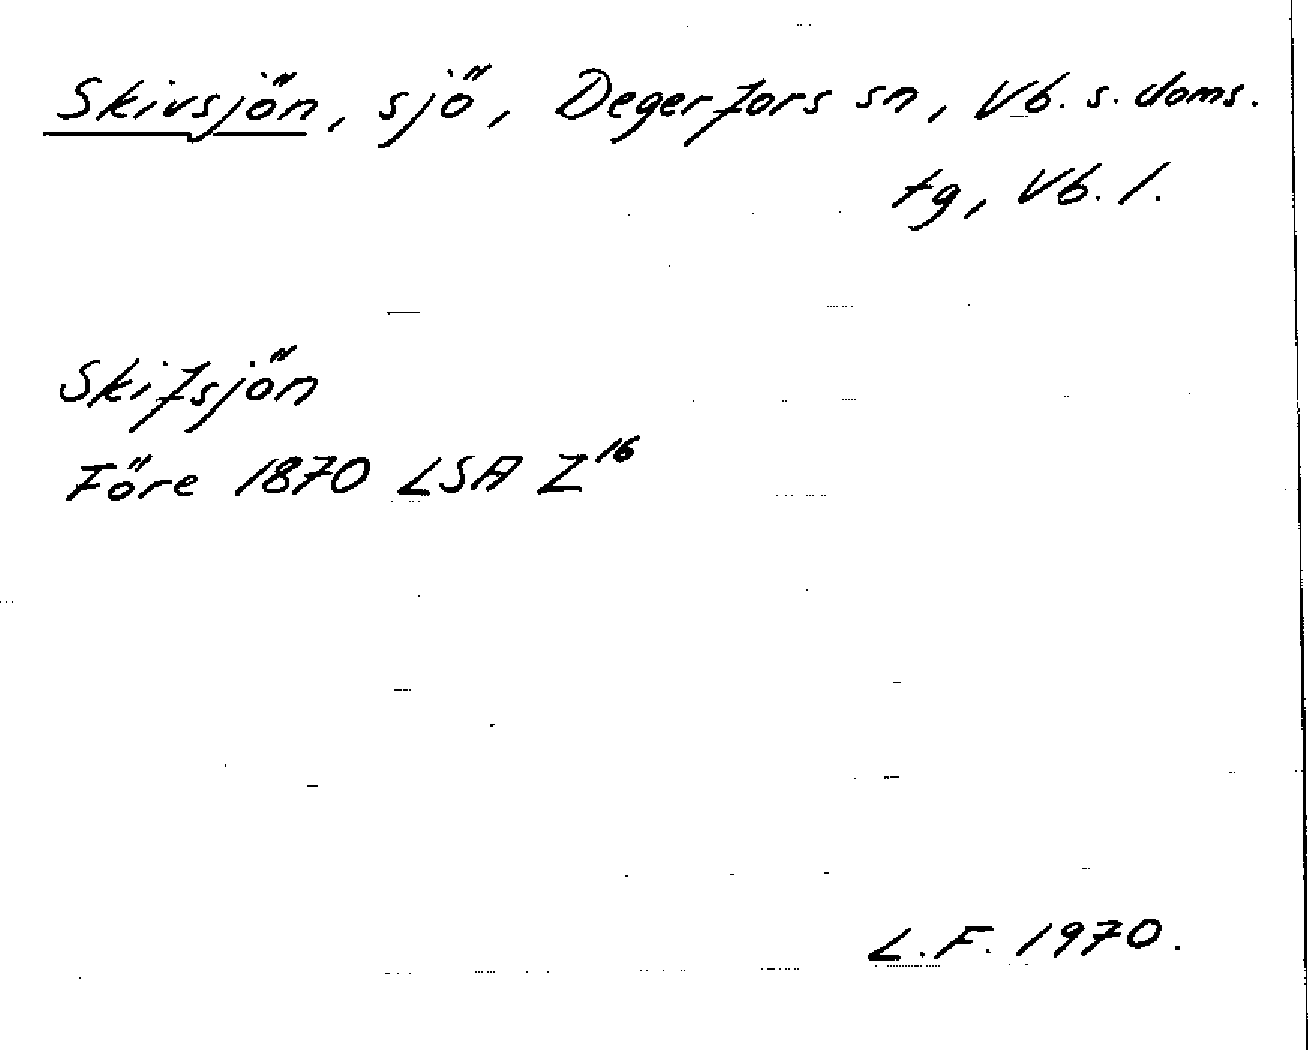 Skivsjön, sjö, Degerfors sn, Vb. s. doms.
tg, Vb. l.
Skifsjön
Före 1870 LSA Z¹⁶
L.F. 1970.